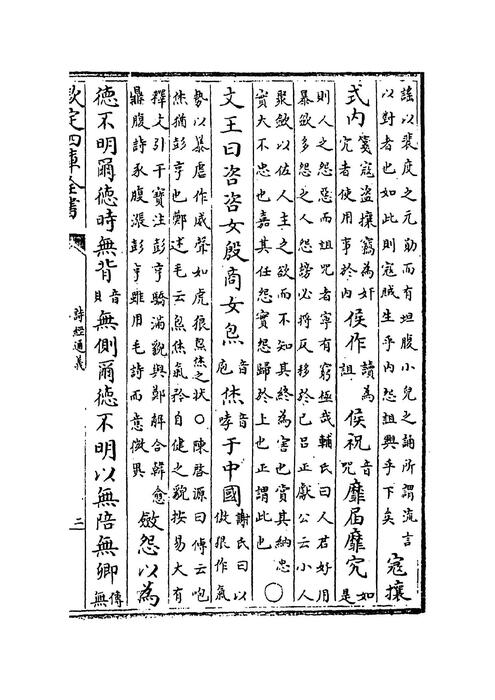 謡以裴度之元勛而有坦腹小兒之誦所謂流言
以對者也如此則寇賊生乎内怨詛興乎下矣
寇攘
式内
寇盗攘竊為奸
宄者使用事於内
侯作
讀為
詛
侯祝
音
咒
靡届靡究
如
是
則人之怨惡而詛咒者寧有窮極哉輔氏曰人君好用
暴斂多怨之人怨謗必將反移於己吕正獻公云小人
聚斂以佐人主之欲而不知其終為害也賞其納忠
實大不忠也嘉其任怨實怨歸於上也正謂此也
○
文王曰咨咨女殷商女炰
音
庖
烋
音
哮
于中國
謝氏曰以
狠作氣
勢以暴虐作威聲如虎狼炰烋之状○陳啓源曰傳云咆
烋猶彭亨也鄭述毛云炰烋氣矜自健之貌按易大有
釋文引干寶注彭亨驕滿貌與鄭解合韓愈
鼎腹詩豕腹漲彭亨雖用毛詩而意微異
斂怨以為
德不明爾德時無背
音
貝
無側爾德不明以無陪無卿
傳
無
欽定四庫全書
詩經通義
二